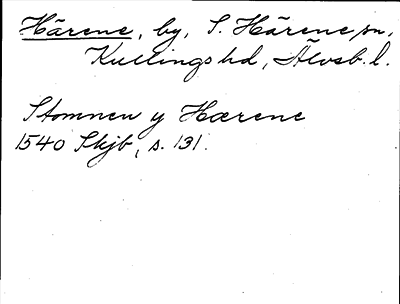 Härene, by, S. Härene sn,
Kullings hd, Älvsb. l.
Stomnen y Hærene
1540 Skjb, s. 131.